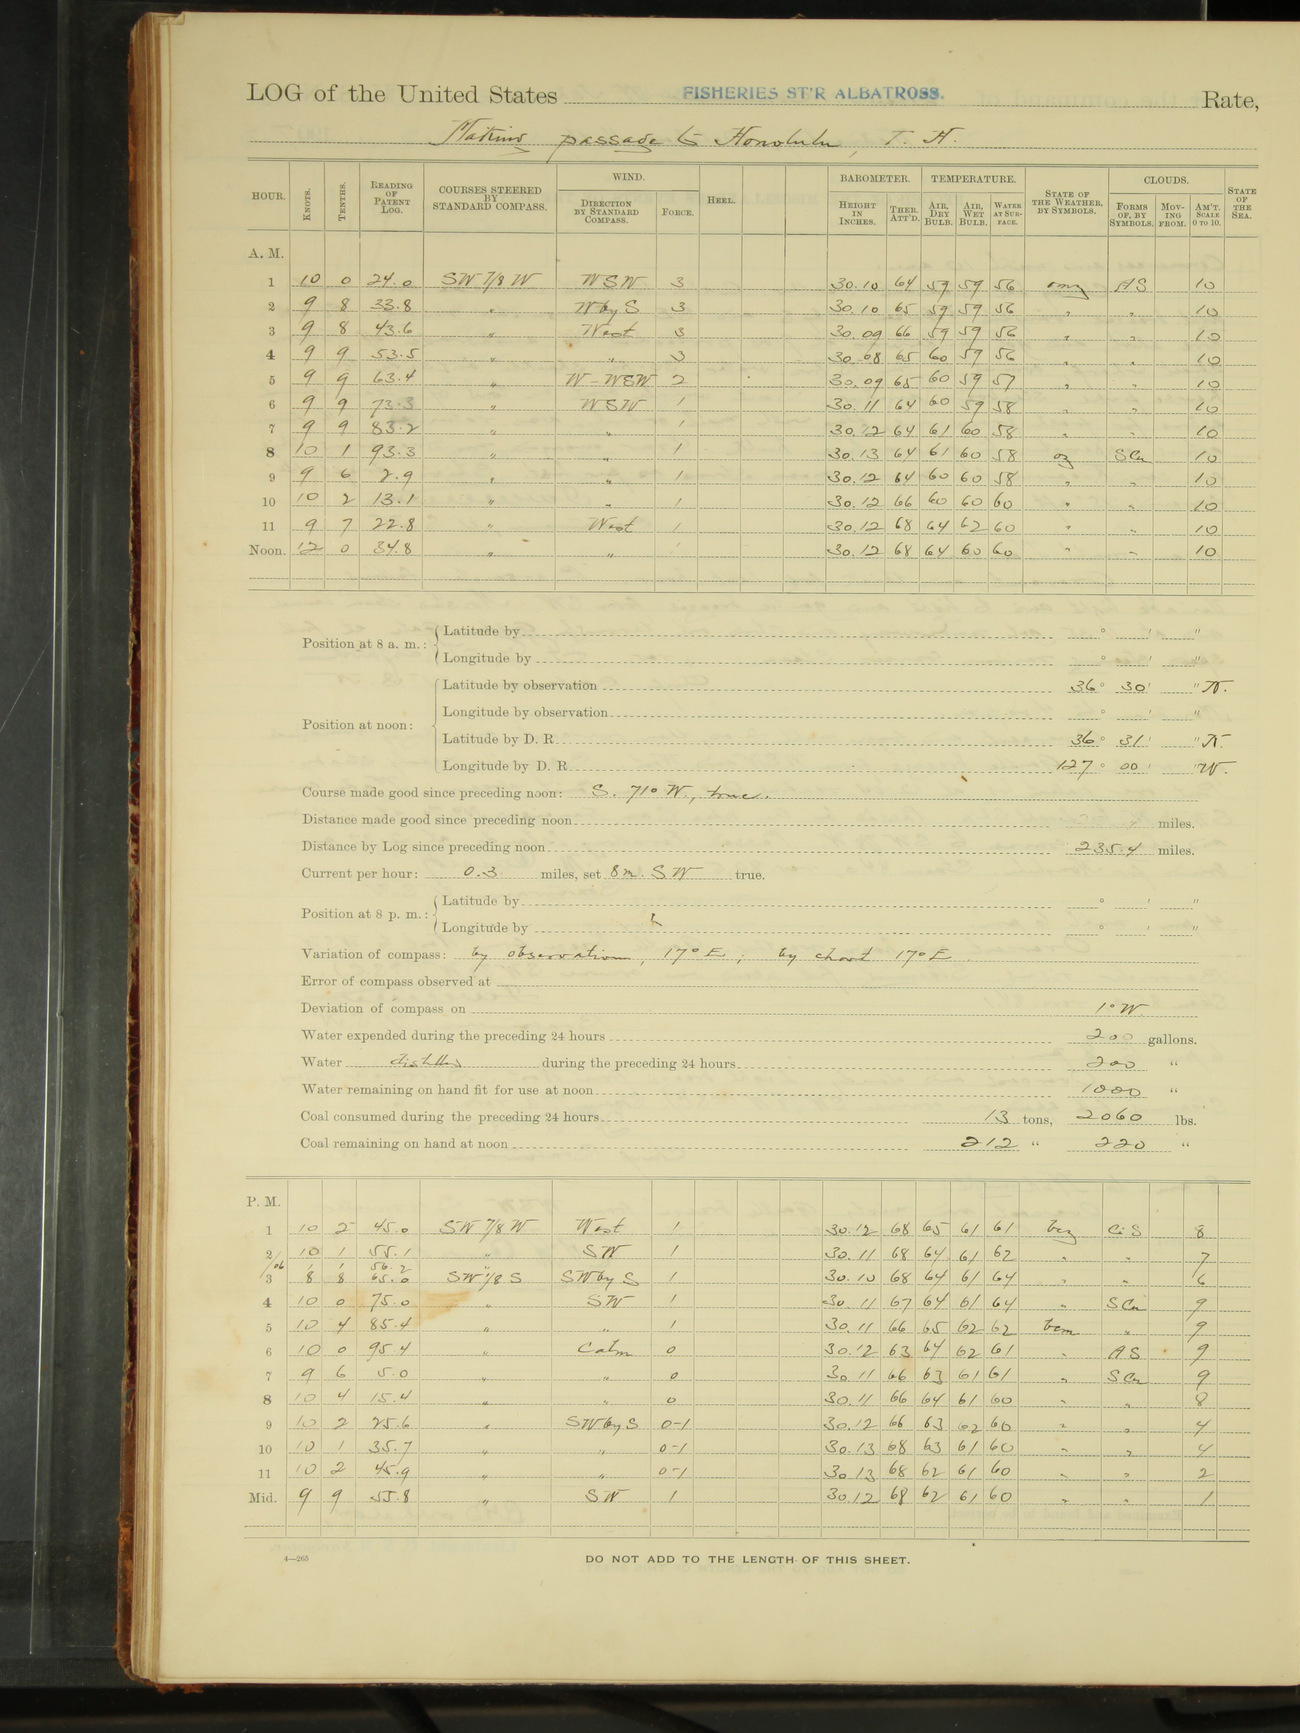 LOG of the United States FISHERIES ST'R ALBATROSS. Rate,
Making passage to Honolulu, T. H.
HOUR. KNOTS. TENTHS. READING OF PATENT LOG. COURSES STEERED BY STANDARD COMPASS. WIND. DIRECTION BY STANDARD COMPASS. FORCE. HEEL. BAROMETER. HEIGHT IN INCHES. THER. ATT'D. TEMPERATURE. AIR, DRY BULB. AIR, WET BULB. WATER AT SURFACE. STATE OF THE WEATHER, BY SYMBOLS. CLOUDS. FORMS OF, BY SYMBOLS. MOVING FROM. AM'T, SCALE 0 TO 10. STATE OF THE SEA.
A. M.
1 10 0 24.0 SW 7/8 W WSW 3 30.10 64 59 59 56 omz AS 10
2 9 8 33.8 " W by S 3 30.10 65 59 59 56 " " 10
3 9 8 43.6 " West 3 30.09 66 59 59 56 " " 10
4 9 9 53.5 " " 3 30.08 65 60 59 56 " " 10
5 9 9 63.4 " W-WSW 2 30.09 65 60 59 57 " " 10
6 9 9 73.3 " WSW 1 30.11 64 60 59 58 " " 10
7 9 9 83.2 " " 1 30.12 64 61 60 58 " " 10
8 10 1 93.3 " " 1 30.13 64 61 60 58 oz SCu 10
9 9 6 2.9 " " 1 30.12 64 60 60 58 " " 10
10 10 2 13.1 " " 1 30.12 66 60 60 60 " " 10
11 9 7 22.8 " West 1 30.12 68 64 62 60 " " 10
Noon. 12 0 34.8 " " 1 30.12 68 64 60 60 " " 10
Position at 8 a. m.: Latitude by ° ' "
Longitude by ° ' "
Position at noon: Latitude by observation 36° 30' " N.
Longitude by observation ° ' "
Latitude by D. R. 36° 31' " N.
Longitude by D. R. 127° 00' " W.
Course made good since preceding noon: S. 71° W., true.
Distance made good since preceding noon miles.
Distance by Log since preceding noon 235.4 miles.
Current per hour: 0.3 miles, set 8m. SW true.
Position at 8 p. m.: Latitude by ° ' "
Longitude by ° ' "
Variation of compass: by observation, 17° E; by chart 17° E.
Error of compass observed at
Deviation of compass on 1° W
Water expended during the preceding 24 hours 200 gallons.
Water distilled during the preceding 24 hours 200 "
Water remaining on hand fit for use at noon 1000 "
Coal consumed during the preceding 24 hours 13 tons, 2060 lbs.
Coal remaining on hand at noon 212 " 220 "
P. M.
1 10 2 45.0 SW 7/8 W West 1 30.12 68 65 61 61 bcz CiS 8
2 10 1 55.1 " SW 1 30.11 68 64 61 62 " " 7
/06 1 1 56.2 "
3 8 8 65.0 SW 1/8 S SW by S 1 30.10 68 64 61 64 " " 6
4 10 0 75.0 " SW 1 30.11 67 64 61 64 " SCu 9
5 10 4 85.4 " " 1 30.11 66 65 62 62 bcm " 9
6 10 0 95.4 " Calm 0 30.12 63 64 62 61 " AS 9
7 9 6 5.0 " " 0 30.11 66 63 61 61 " SCu 9
8 10 4 15.4 " " 0 30.11 66 64 61 60 " " 8
9 10 2 25.6 " SW by S 0-1 30.12 66 63 62 60 " " 4
10 10 1 35.7 " " 0-1 30.13 68 63 61 60 " " 4
11 10 2 45.9 " " 0-1 30.13 68 62 61 60 " " 2
Mid. 9 9 55.8 " SW 1 30.12 68 62 61 60 " " 1
4—265
DO NOT ADD TO THE LENGTH OF THIS SHEET.